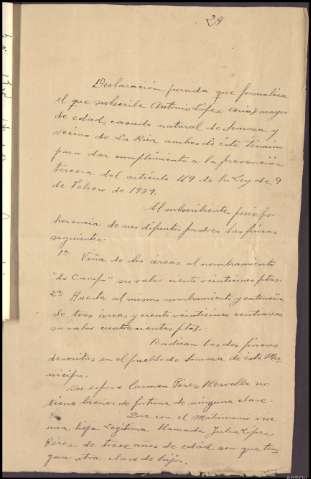 29
Declaración jurada que formaliza
el que subscribe Antonio López mayor
de edad, casado natural de y
vecino de La Rúa, ambos de este término
para dar cumplimiento a la prevención
tercera del artículo 49 de la Ley de 9
de Febrero de 1939.
El subscribiente posee por
herencia de sus difuntos padres las fincas
siguientes:
1ª Viña de dos áreas al nombramiento
su valor ciento veinticinco ptas.
2ª Huerta al mismo nombramiento y extensión
de tres áreas y ciento veinticinco centiáreas
su valor cuatrocientas ptas.
Radican las dos fincas
descritas en el pueblo de de este Mu-
nicipio.
La esposa Carmen Pérez no
tiene bienes de fortuna de ninguna clase.
Que con el Matrimonio vive
una hija legítima llamada Julia López
Pérez de trece años de edad sin que ten-
gan otra clase de hijos.